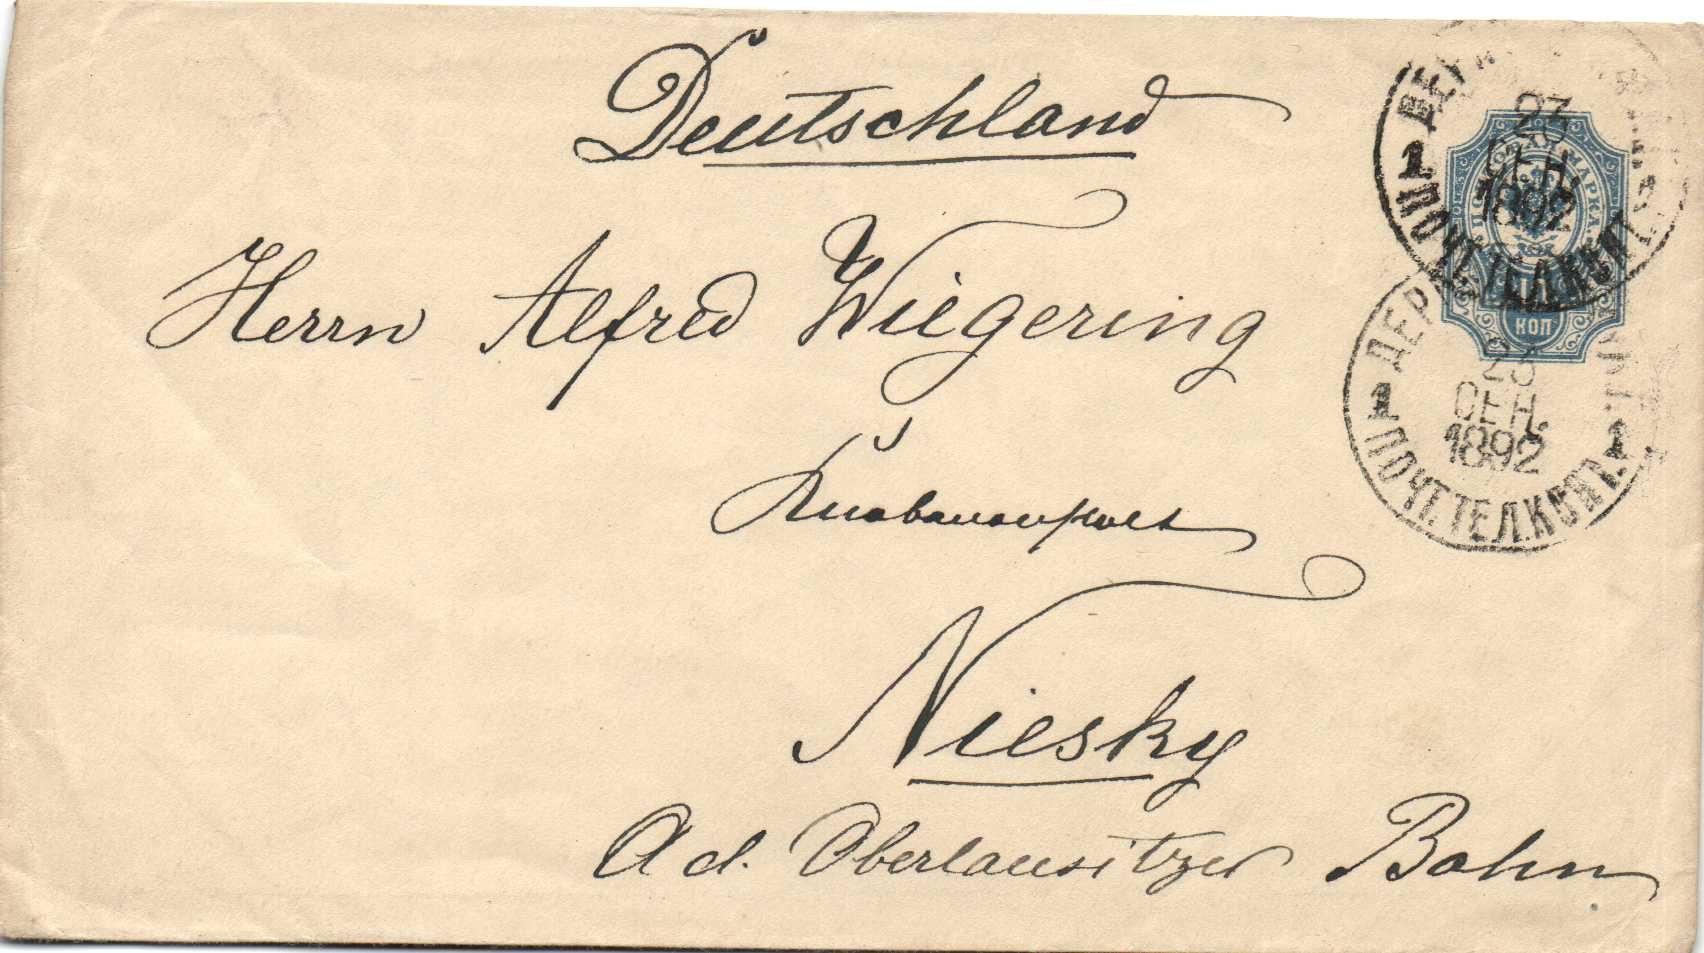 Deutschland
Herrn Alfred Wiegering
Niesky
A d. Oberlausitzer Bahn
ПОЧТОВАЯ МАРКА
КОП
23
СЕН.
1892
1 ПОЧТ.ТЕЛ.КОНТ.
ДЕР
23
СЕН.
1892
1 ПОЧТ.ТЕЛ.КОНТ. 1